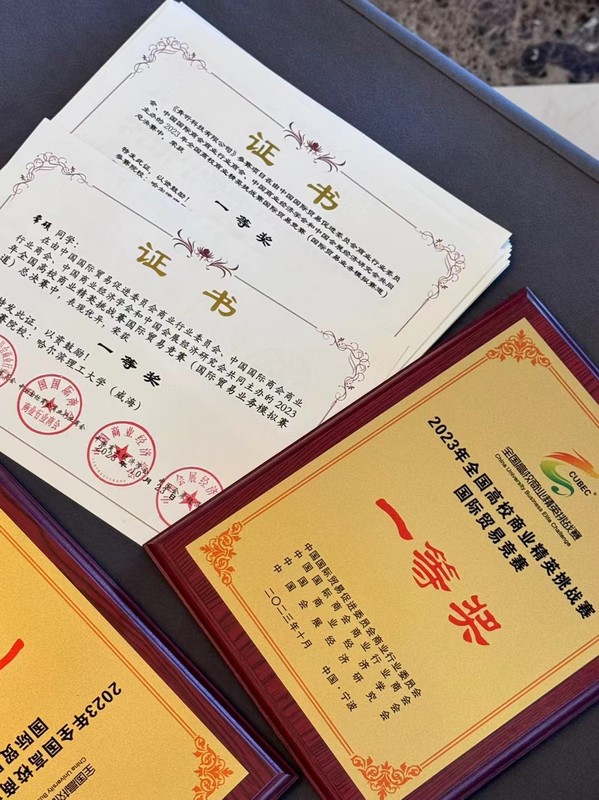 证 书
主办的2023年全国高校商业精英挑战赛国际贸易竞赛(国际贸易业务模拟赛道)
总决赛中,荣获
一等奖
特发此证,以资鼓励!
证 书
同学:
在由中国国际贸易促进委员会商业行业委员会、中国国际商会商业
行业商会、中国商业经济学会和中国会展经济研究会共同主办的2023
年全国高校商业精英挑战赛国际贸易竞赛(国际贸易业务模拟赛
道)总决赛中,表现优异,荣获
一等奖
特发此证,以资鼓励!
参赛院校:哈尔滨理工大学(威海)
商业行业商会
CUBEC
全国高校商业精英挑战赛
China University Business Elite Challenge
2023年全国高校商业精英挑战赛
国际贸易竞赛
一等奖
中国国际贸易促进委员会商业行业委员会
中国国际商会商业行业商会
中国商业经济学会
中国会展经济研究会
中国·宁波
二〇二三年十月
全国高校
China University Bu
2023年全国高校商
国际贸
一